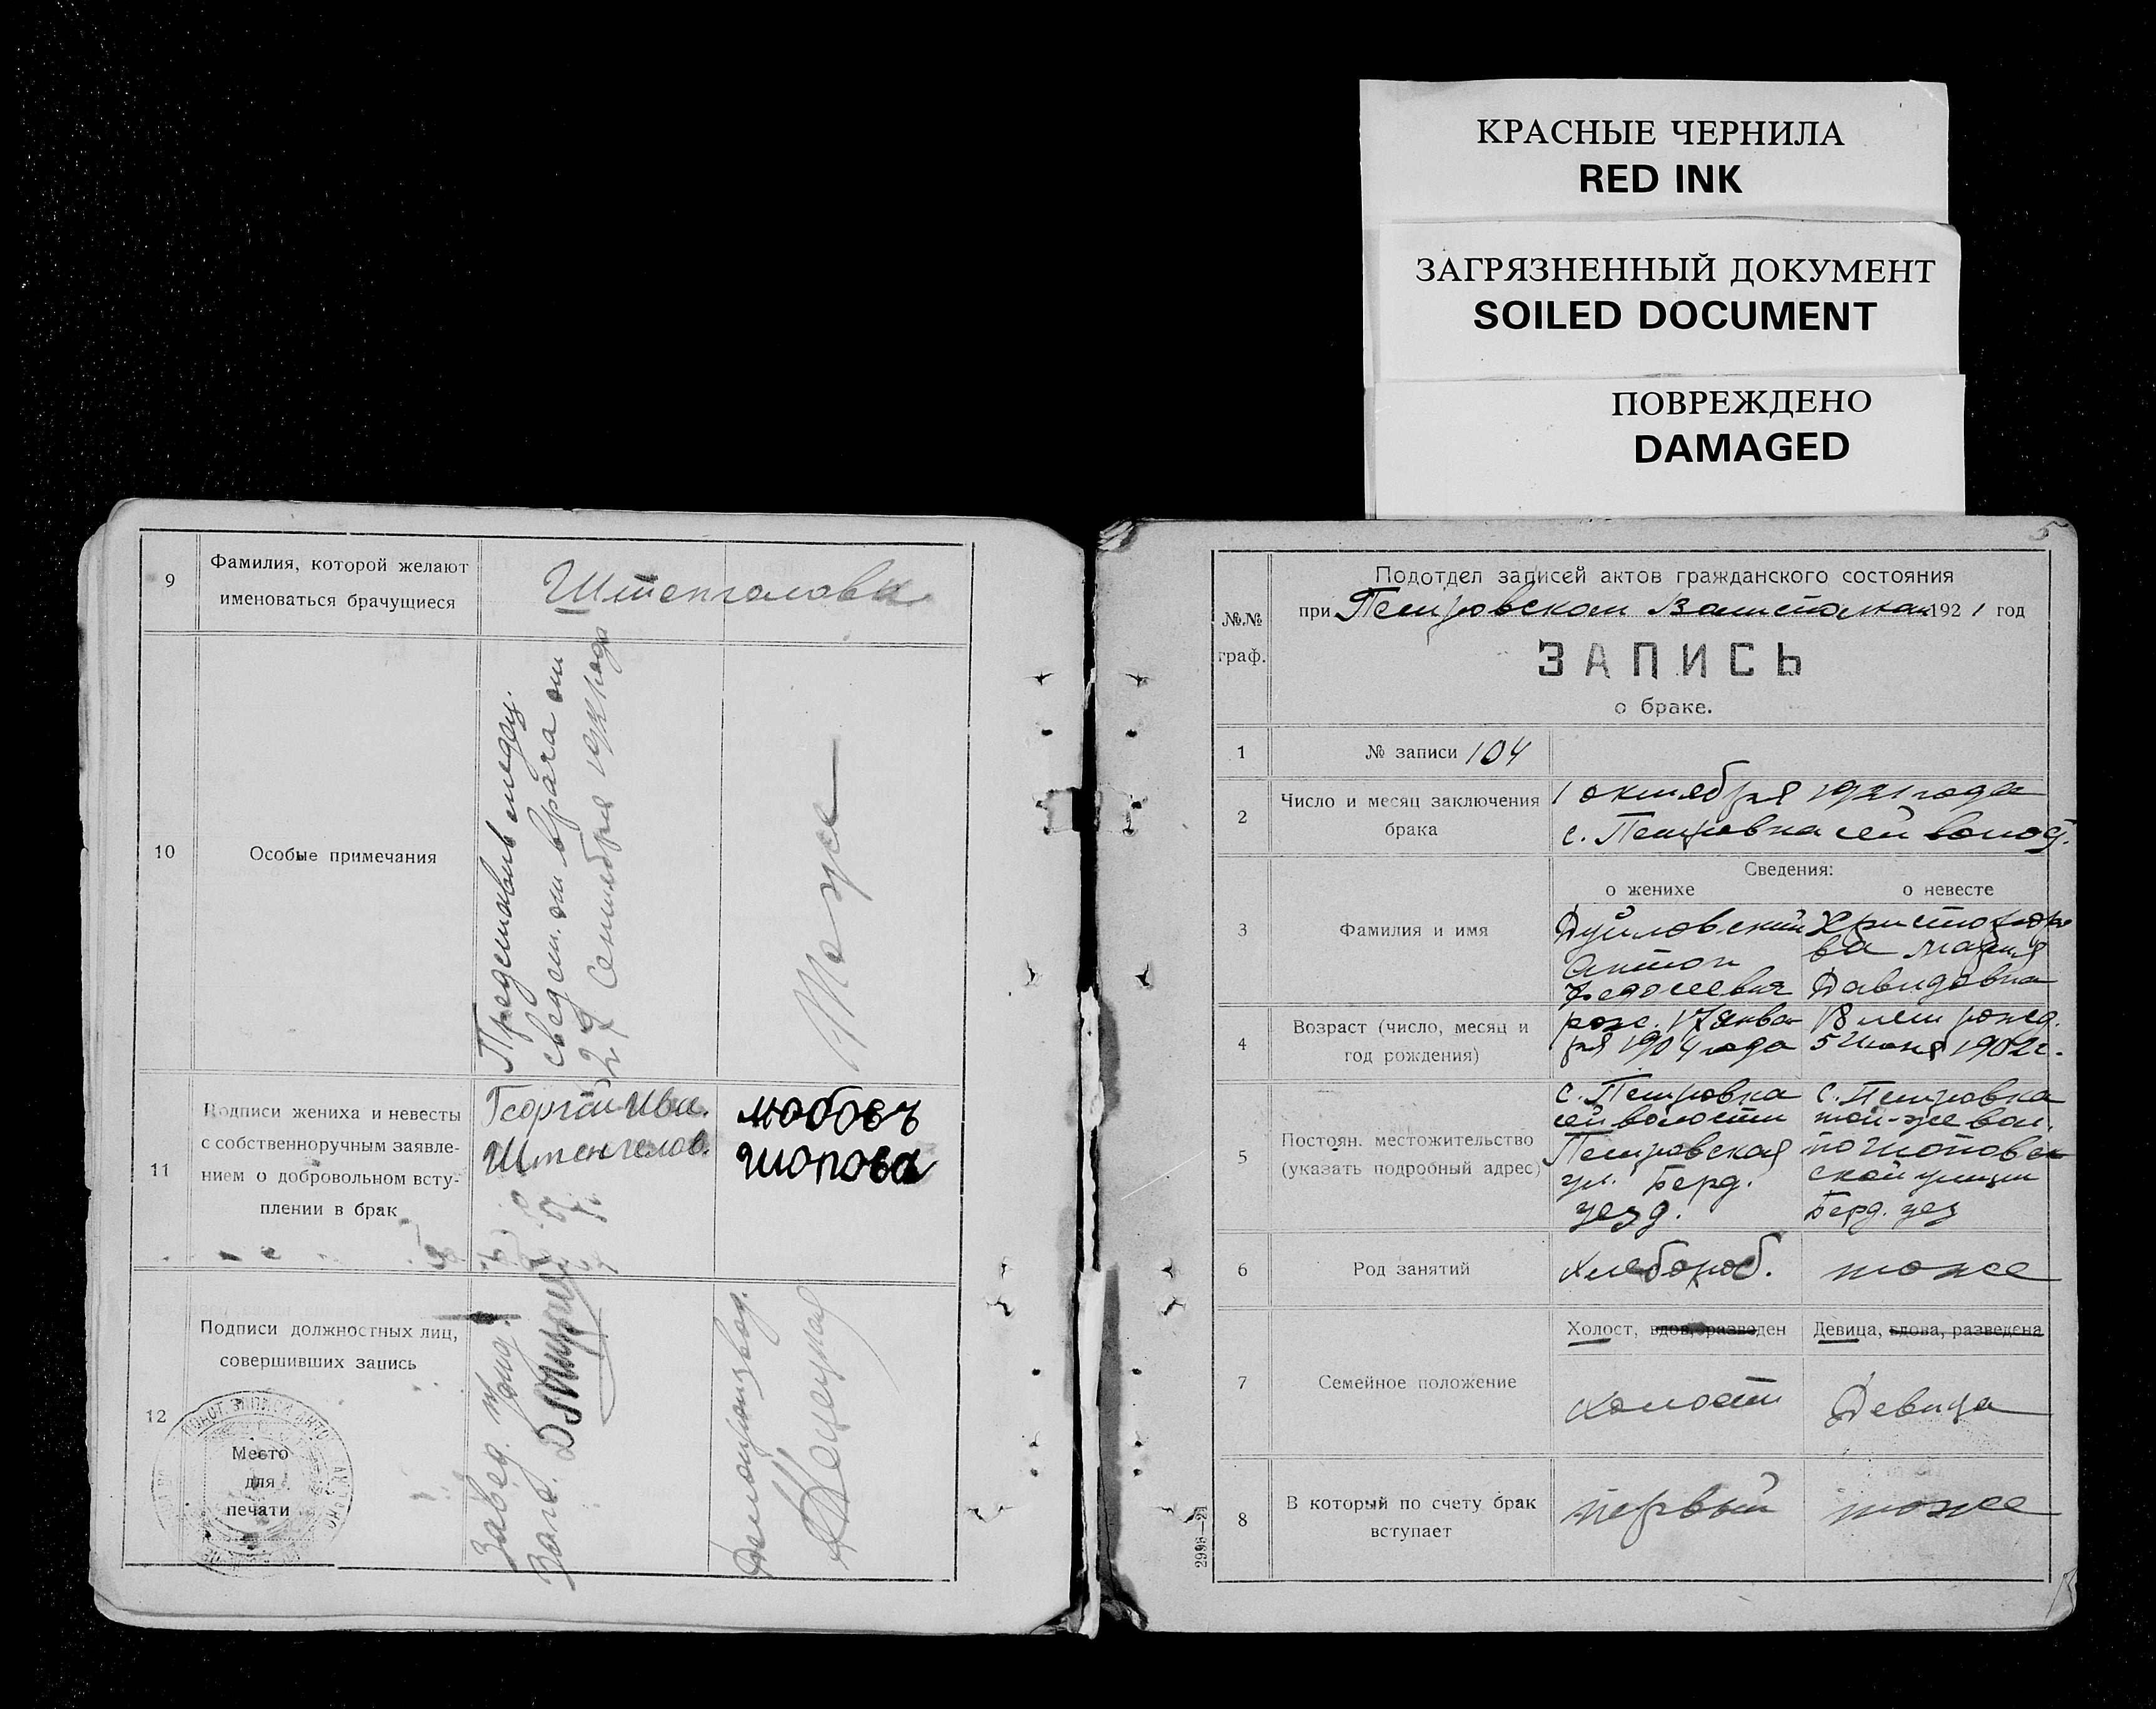 КРАСНЫЕ ЧЕРНИЛА
RED INK
ЗАГРЯЗНЕННЫЙ ДОКУМЕНТ
SOILED DOCUMENT
ПОВРЕЖДЕНО
DAMAGED
9
Фамилия, которой желают
именоваться брачущиеся
10
Особые примечания
Представив
сведет. от врача от
29 Сентября
Тоже
11
Подписи жениха и невесты
с собственноручным заявле-
нием о добровольном всту-
плении в брак
Георгий Ива.
Штенгелов.
Любовъ
Шопова
12
Подписи должностных лиц,
совершивших запись
Место
для
печати
Завед.
Делопроизвод.
5
№№
граф.
Подотдел записей актов гражданского состояния
при Петровском 1921 год
ЗАПИСЬ
о браке.
1
№ записи 104
2
Число и месяц заключения
брака
1 октября 1921 года
с. Петровка сей волос.
Сведения:
о женихе
о невесте
3
Фамилия и имя
Антон
Федосеевич
Христофоро
ва Мария
Давидовна
4
Возраст (число, месяц и
год рождения)
рож. 17 Янва
ря 1904 года
18 лет рожд.
5 Июня 1902 г.
5
Постоян. местожительство
(указать подробный адрес)
с. Петровка
сей волости
Петровская
ул. Берд.
уезд.
с. Петровка
той-же вол.
по
ской улицы
Берд. уез
6
Род занятий
хлебороб.
тоже
7
Семейное положение
Холост, вдов, разведен
Девица, вдова, разведена
холост
Девица
8
В который по счету брак
вступает
первый
тоже